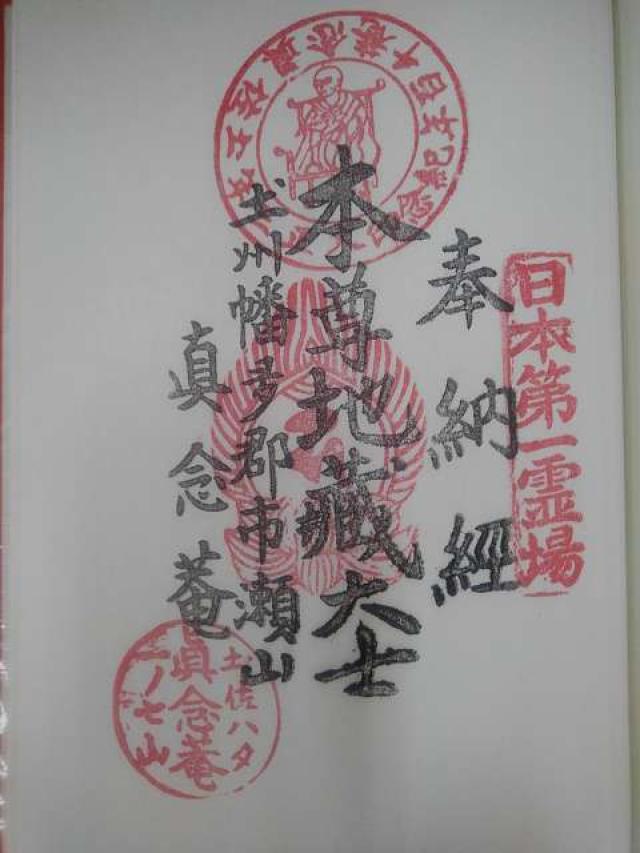 日本第一霊場
奉納経
本尊地蔵大士
土州幡多郡市瀬山
真念菴
土佐ハタ
眞念菴
一ノ七山